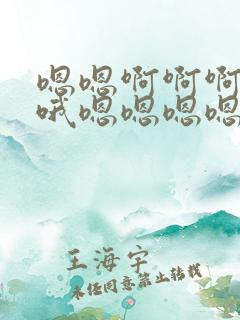 嗯嗯啊啊啊
哦嗯嗯嗯嗯
王海宇
未经同意禁止转载